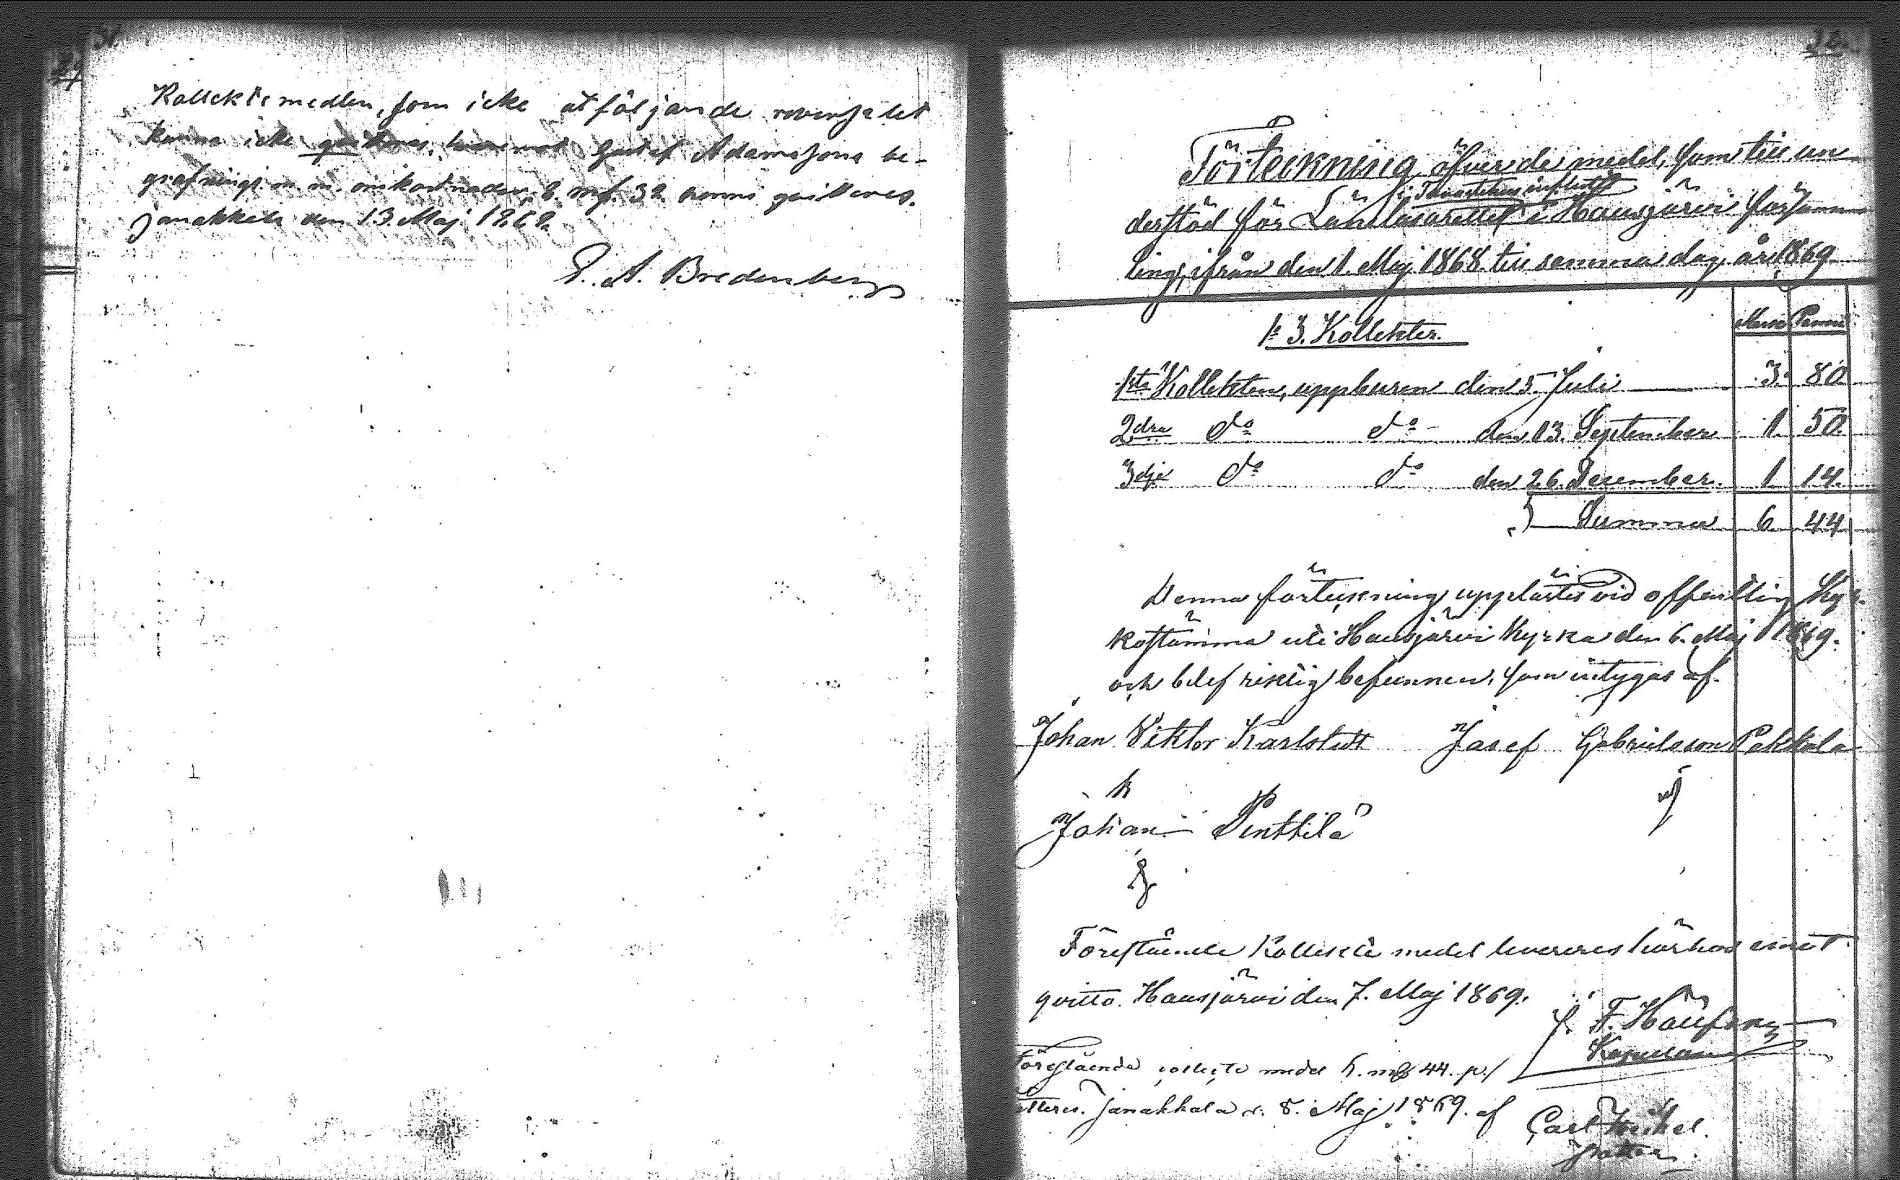 Kollekte medlen, som icke åtföljande reversalet
kunna icke qvitteras, hvaremot Gustaf Adamssons be-
grafnings m. m. omkostnader, 8. mk. 32. penni qvitteras.
Janakkala den 13. Maj 1868.
E. A. Bredenberg
Förteckning öfver de medel, som till un
i Tavastehus
derstöd för Länslasarettet i Hausjärvi försam
ling, ifrån den 1. Maj 1868. till samma dag år 1869
3. Kollekter.
Mark Penni
1sta Kollekten, uppburen den 5. Juli 3. 80.
2dra do do den 13. September 1. 50.
3dje do do den 26. December. 1. 14.
Summa 6. 44.
Denna förteckning upplästes vid offentlig Kyr
kostämma uti Hausjärvi Kyrka den 6. Maj 1869.
och blef riktig befunnen, som intygas af.
Johan Viktor Karlstedt Josef Gabrielsson Pekkola
Johan Penttilä
Förestående Kollekte medel levereras härhos emot
qvitto. Hausjärvi den 7. Maj 1869.
F.
Kapellan
Förestående collecte medel 6. mk 44. p.
Janakkala d. 8. Maj 1869. af
Carl